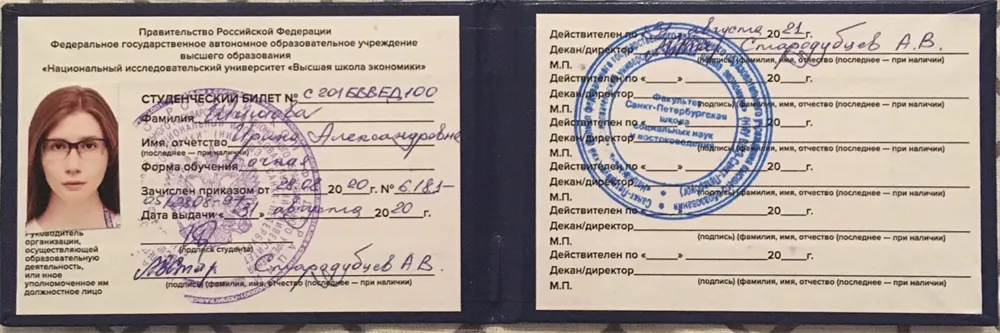 Правительство Российской Федерации
Федеральное государственное автономное образовательное учреждение
высшего образования
«Национальный исследовательский университет «Высшая школа экономики»
СТУДЕНЧЕСКИЙ БИЛЕТ №
Фамилия
Имя, отчество Ирина Александровна
(последнее — при наличии)
Форма обучения Очная
Зачислен приказом от 28.08 2020 г. № 6.18.1-
Дата выдачи «31» августа 2020 г.
(подпись студента)
Руководитель
организации,
осуществляющей
образовательную
деятельность,
или иное
уполномоченное им
должностное лицо
Стародубцев А.В.
(подпись) (фамилия, имя, отчество (последнее — при наличии)
Действителен по «31» августа 2021 г.
Декан/директор Стародубцев А.В.
М.П. (подпись) (фамилия, имя, отчество (последнее — при наличии)
Действителен по «___» 20___г.
Декан/директор
М.П. (подпись) (фамилия, имя, отчество (последнее — при наличии)
Действителен по «___» 20___г.
Декан/директор
М.П. (подпись) (фамилия, имя, отчество (последнее — при наличии)
Действителен по «___» 20___г.
Декан/директор
М.П. (подпись) (фамилия, имя, отчество (последнее — при наличии)
Действителен по «___» 20___г.
Декан/директор
М.П. (подпись) (фамилия, имя, отчество (последнее — при наличии)
Действителен по «___» 20___г.
Декан/директор
М.П. (подпись) (фамилия, имя, отчество (последнее — при наличии)
Факультет
Санкт-Петербургская
школа
социальных наук
и востоковедения